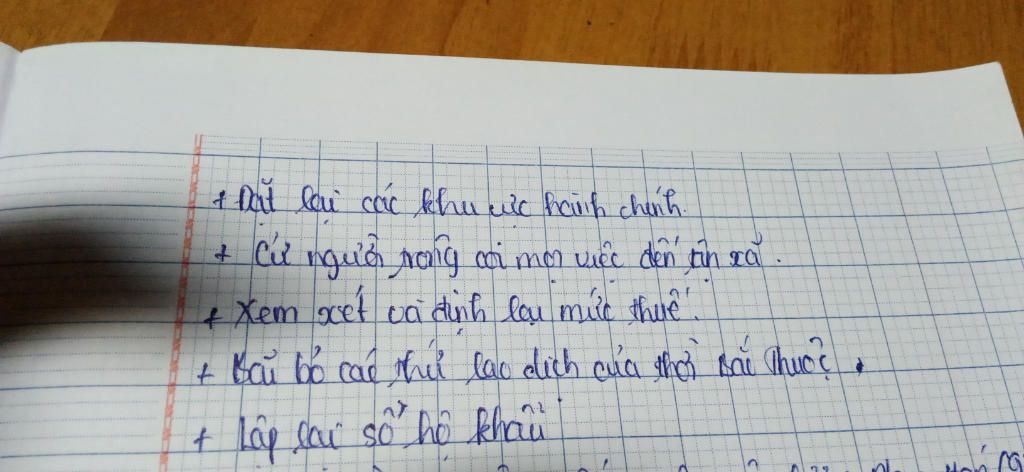 + Đặt lại các khu vực hành chính.
+ Cử người trông coi mọi việc đến tận xã.
+ Xem xét và định lại mức thuế.
+ Bãi bỏ các thứ lao dịch của thời Bắc thuộc.
+ Lập lại sổ hộ khẩu